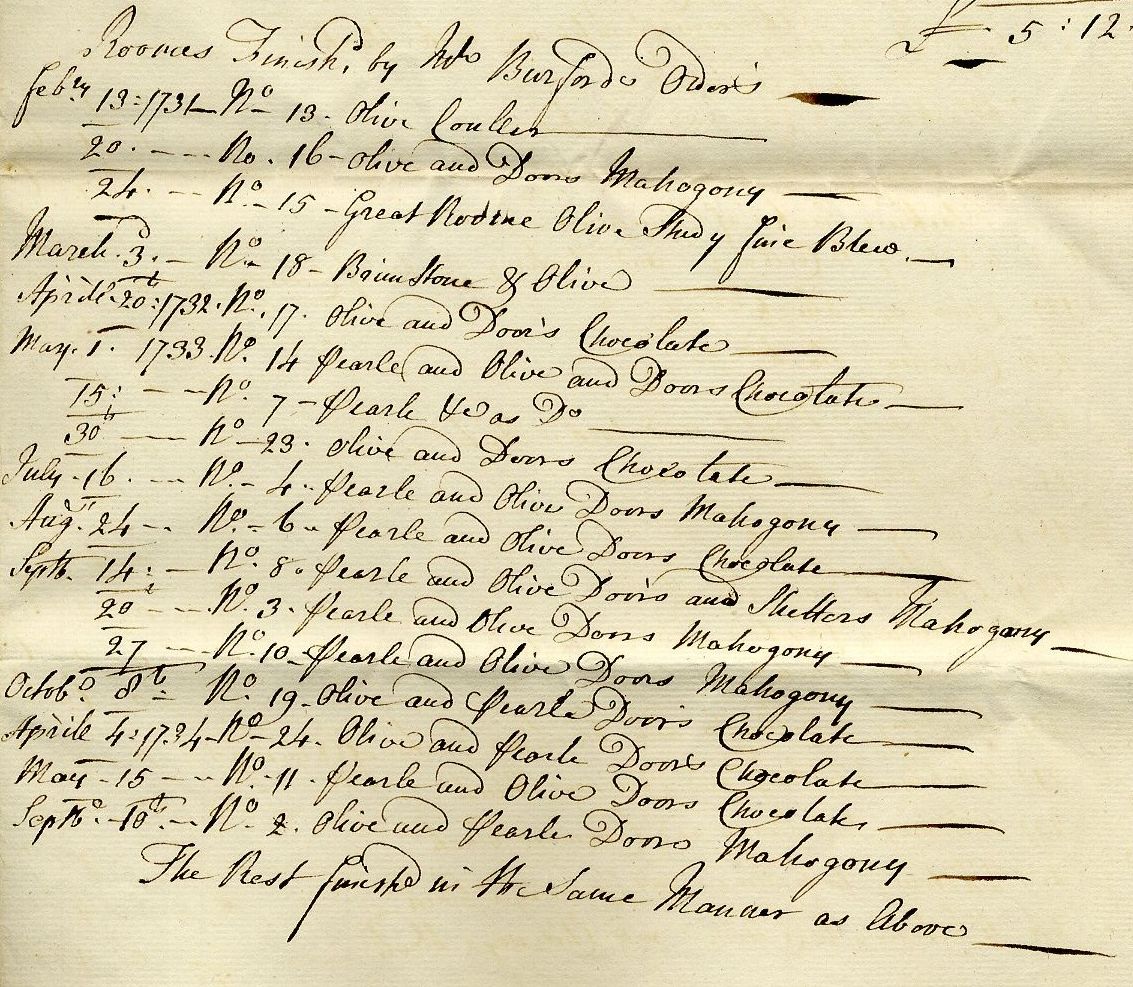 £ 5 : 12.
Roomes Finish'd by Mr Burfords Order's
Febry 13 : 1731 No 13 - Olive Couller
20 . - - - No . 16 - Olive and Doors Mahogony
24 . - - No - 15 - Great Roome Olive Study fine Blew
March . 3d . - No - 18 - Brimstone & Olive
Aprile 20th : 1732 . No . 17 . Olive and Door's Chocolate
May . 1 . 1733 . No . 14 Pearle and Olive and Doors Chocolate
15 : - - - No . 7 - Pearle &c as Do
30th - - No - 23 . Olive and Doors Chocolate
July . 16 . - - No . - 4 . Pearle and Olive Doors Mahogony
Augt . 24 - - . No . - 6 - Pearle and Olive Doors Chocolate
Septb . 14 : - No . 8 . Pearle and Olive Doors and Shetters Mahogony
20t - - - No . 3 . Pearle and Olive Doors Mahogony
27 - - - No 10 - Pearle and Olive Doors Mahogony
Octobo 8th - No . 19 - Olive and Pearle Door's Chocolate
Aprile 4 : 1734 - No - 24 . Olive and Pearle Doors Chocolate
May - 15 - - - No . 11 . Pearle and Olive Doors Chocolate
Septbo . 10th . - - No . 2 . Olive and Pearle Doors Mahogony
The Rest finishd in the Same Manner as Above